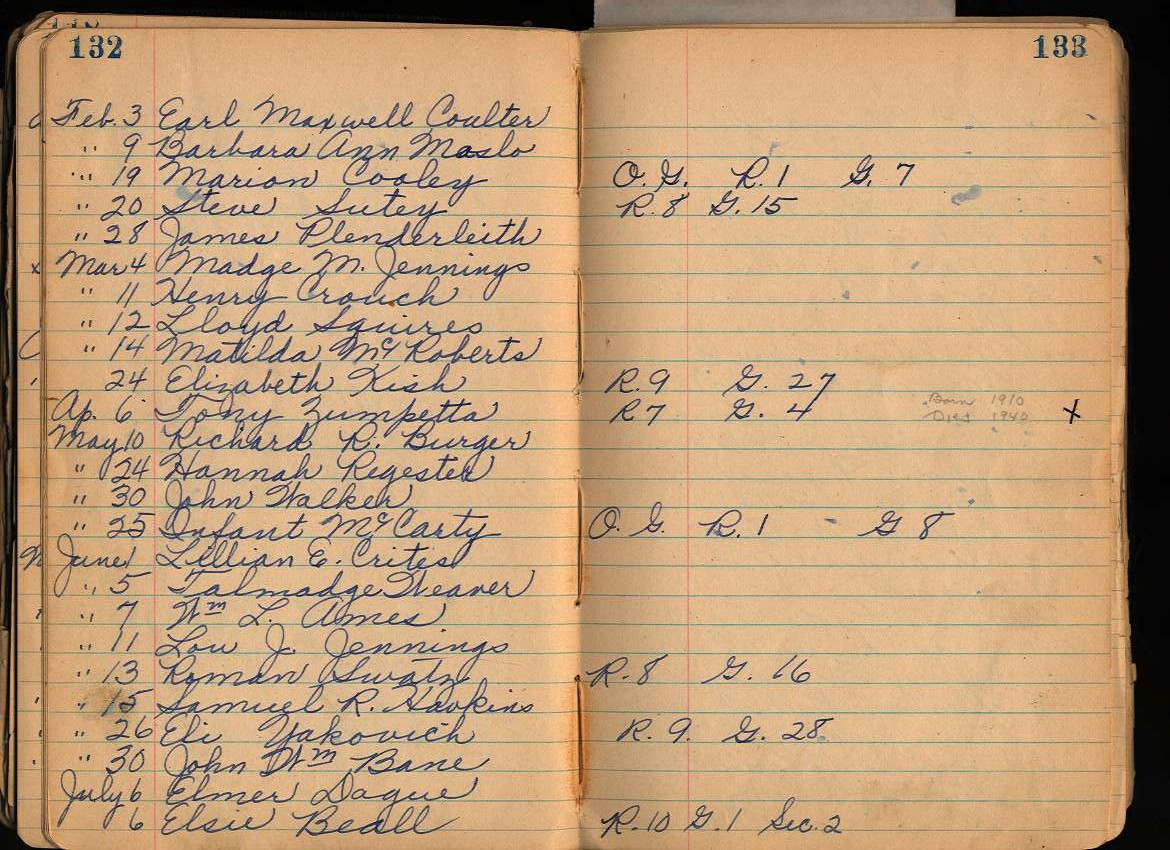 132
133
Feb. 3 Earl Maxwell Coulter
" 9 Barbara Ann Maslo
" 19 Marion Cooley O.G. R.1 G.7
" 20 Steve Sutey R.8 G.15
" 28 James Plenderleith
x Mar 4 Madge M. Jennings
" 11 Henry Crouch
" 12 Lloyd Squires
" 14 Matilda McRoberts
24 Elizabeth Kish R.9 G.27
Ap. 6 Tony Zumpetta R7 G.4 Born 1910 x
Died 1940
May 10 Richard R. Burger
" 24 Hannah Regester
" 30 John Walker
" 25 Infant McCarty O.G. R.1 - G 8
June 1 Lillian E. Crites
" 5 Talmadge Weaver
" 7 Wm L. Ames
" 11 Lou J. Jennings
" 13 Roman Swatz R.8 G.16
" 15 Samuel R. Hawkins
" 26 Eli Yakovich R.9. G.28.
" 30 John Wm Bane
July 6 Elmer Dague
6 Elsie Beall R.10 G.1 Sec.2